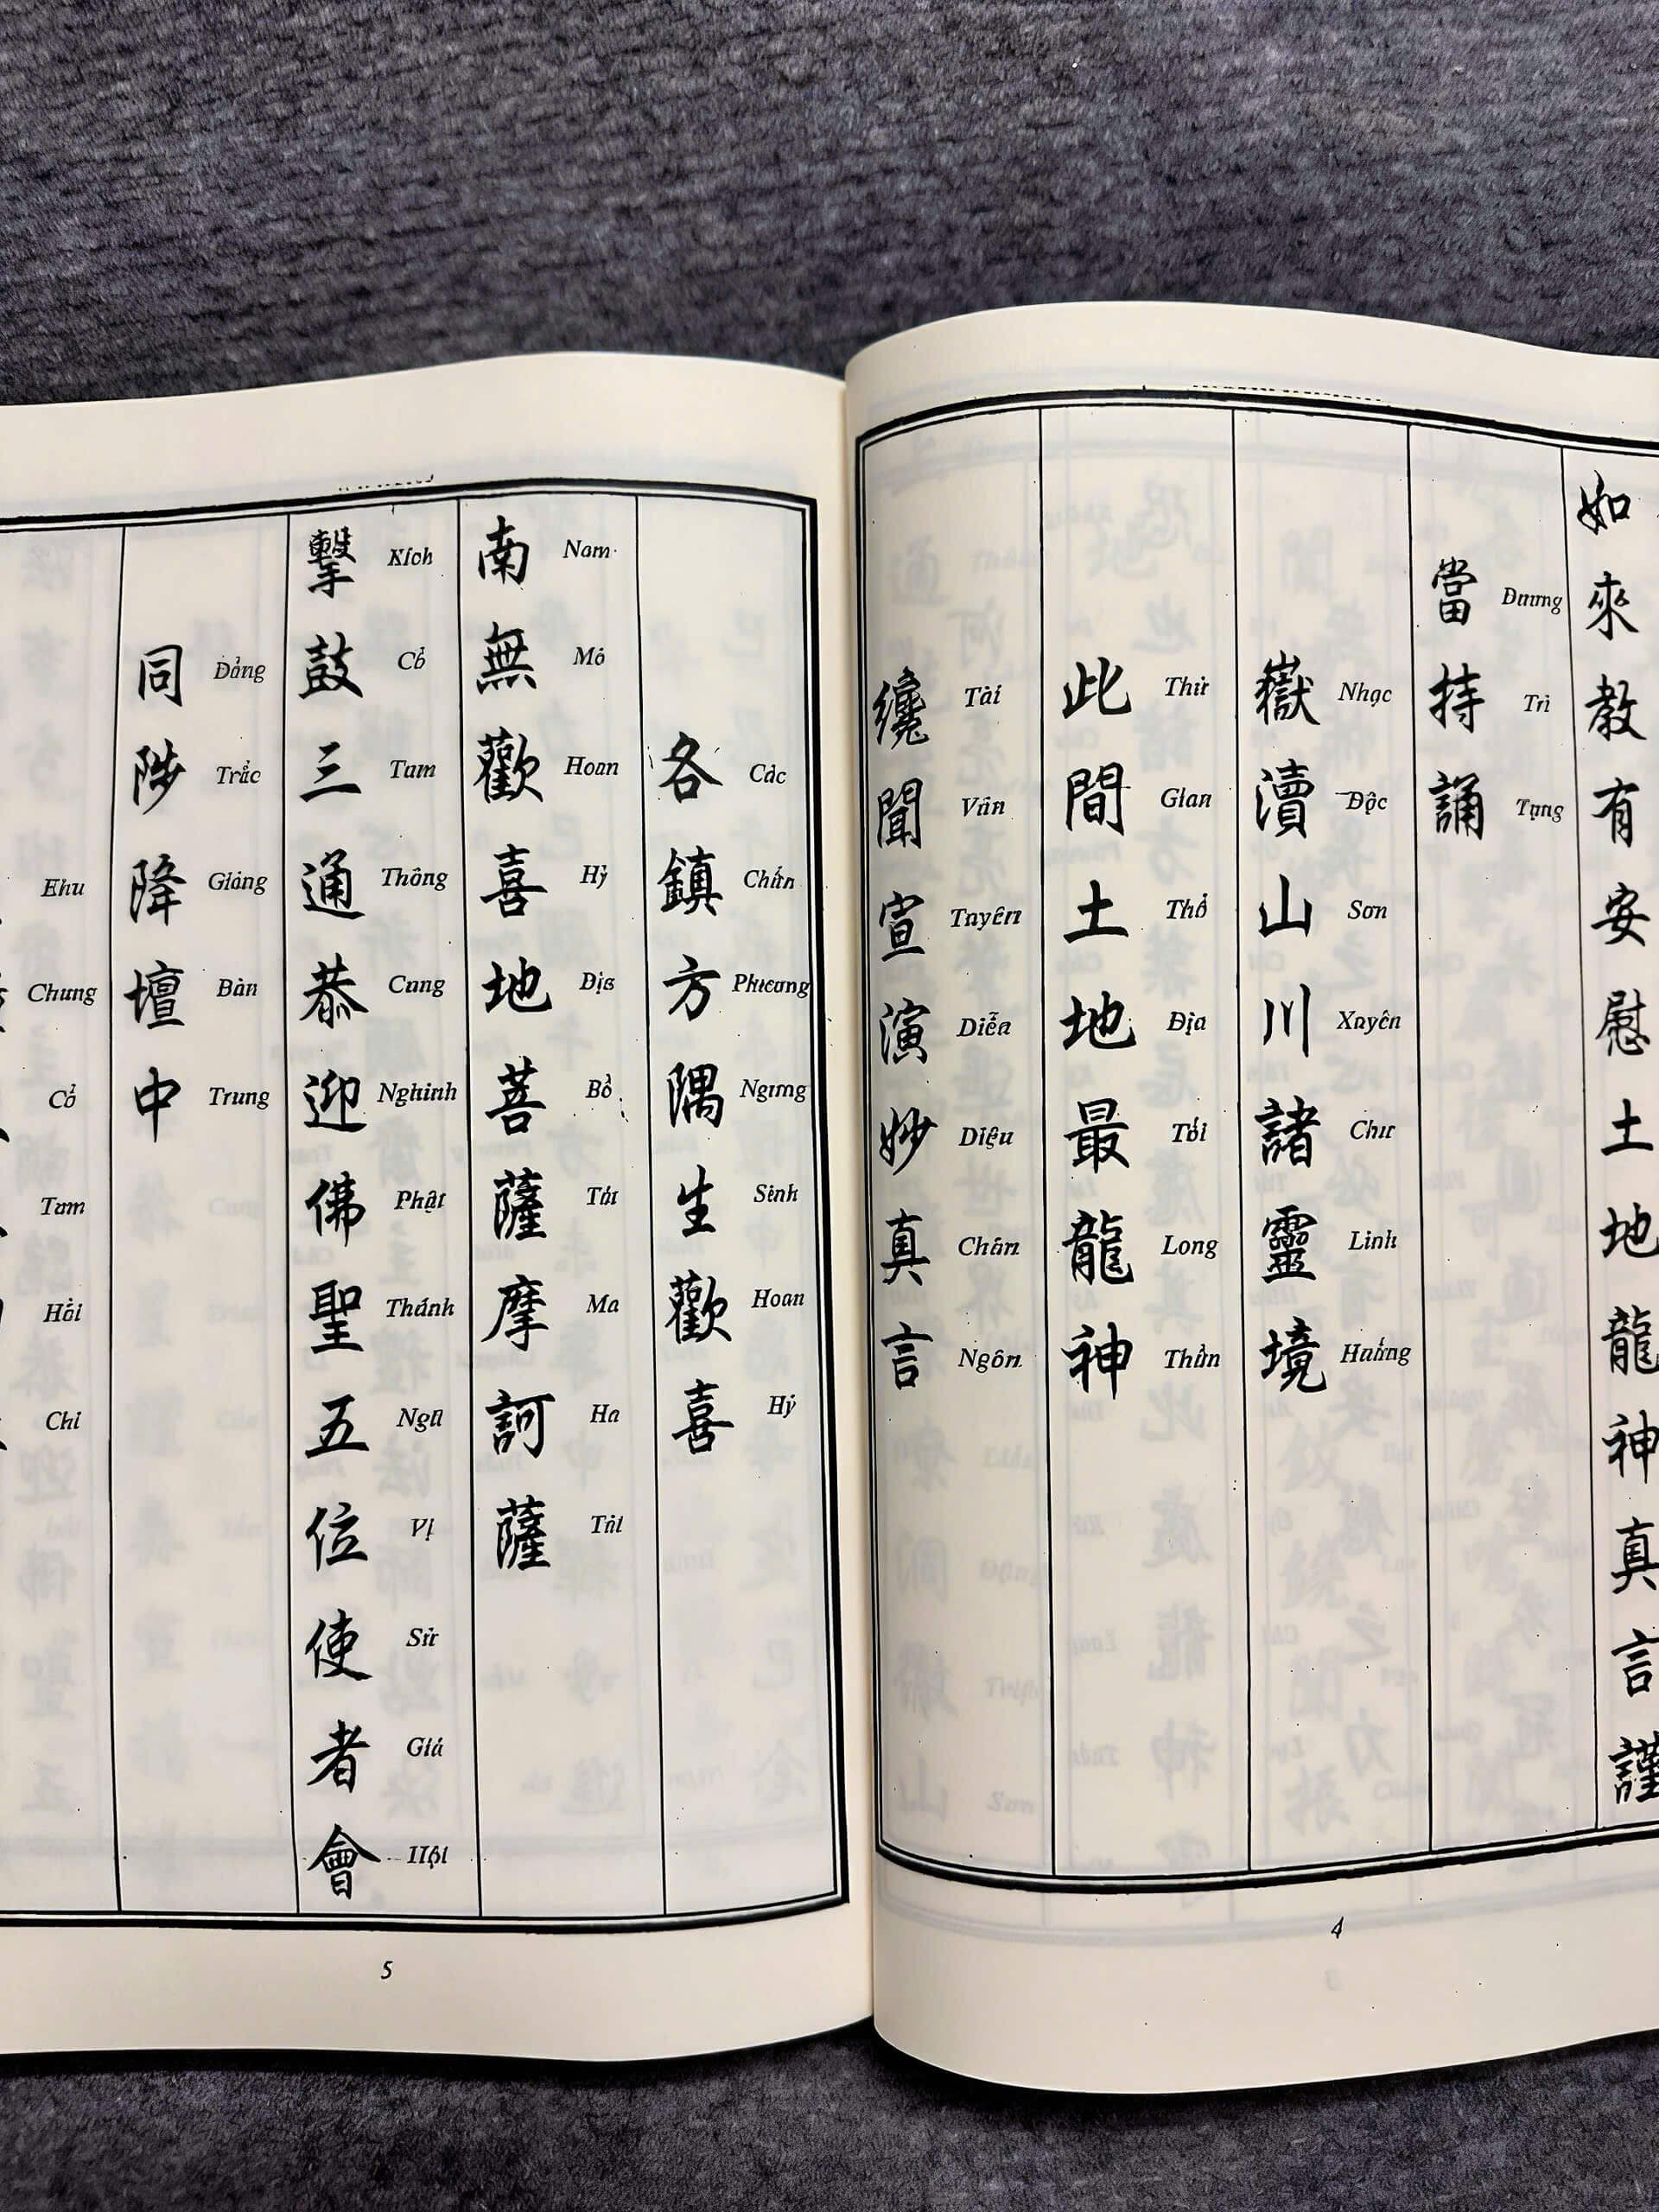 如來教有安慰土地龍神真言謹
當持誦
Đương Trì Tụng
嶽瀆山川諸靈境
Nhạc Độc Sơn Xuyên Chư Linh
此間土地最龍神
Thử Gian Thổ Địa Tối Long Thần
纔聞宣演妙真言
Tài Văn Tuyên Diễn Diệu Chân Ngôn
4
各鎮方隅生歡喜
Các Chấn Phương Sinh Hoan Hỷ
南無歡喜地菩薩摩訶薩
Nam Mô Hoan Hỷ Địa Bồ Tát Ma Ha Tát
擊鼓三通恭迎佛聖五位使者會
Kích Cổ Tam Thông Cung Nghinh Phật Thánh Ngũ Vị Sứ Giả Hội
同陟降壇中
Đảng Trắc Giáng Bàn Trung
Chung Cổ Tam Hồi Chi
5